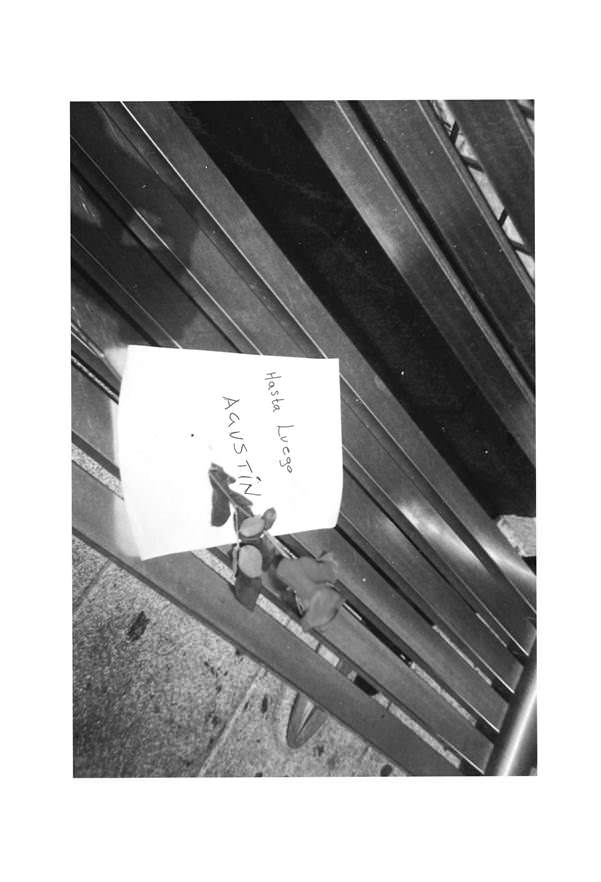 Hasta Luego
AGUSTÍN